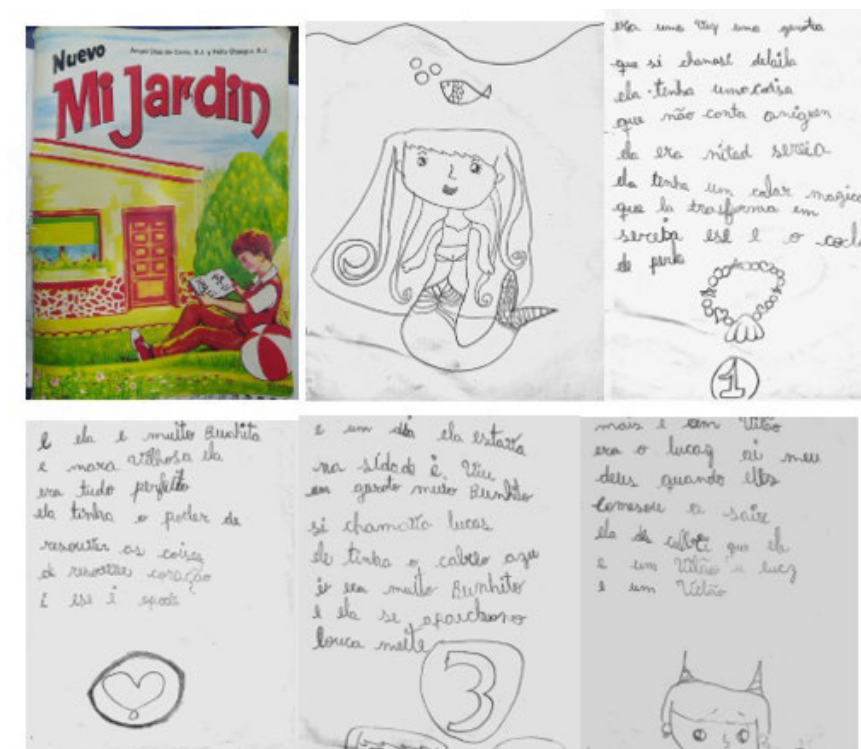 Nuevo
Mi Jardin
era uma vez uma garota
que si chamasé delaila
ela tenha uma coisa
que não conta aniguen
ela era mitad seréia
ela tenha um colar magico
que la trasforma em
ese é o
de
1
E ela é muito Bunhita
e mara vilhosa ela
era tudo perfeito
ela tinha o poder de
as
de coração
E ese é
e um dia ela estava
na sidade é viu
um garoto muito Bunhito
si chamava lucas
ele tinha o cabelo azu
é era muito Bunhito
E ela se
louca meite
3
mais é um Vilão
era o lucaz ai meu
deus quando elles
a sair
ela que ela
é um Vilão u lucz
é um Vilão